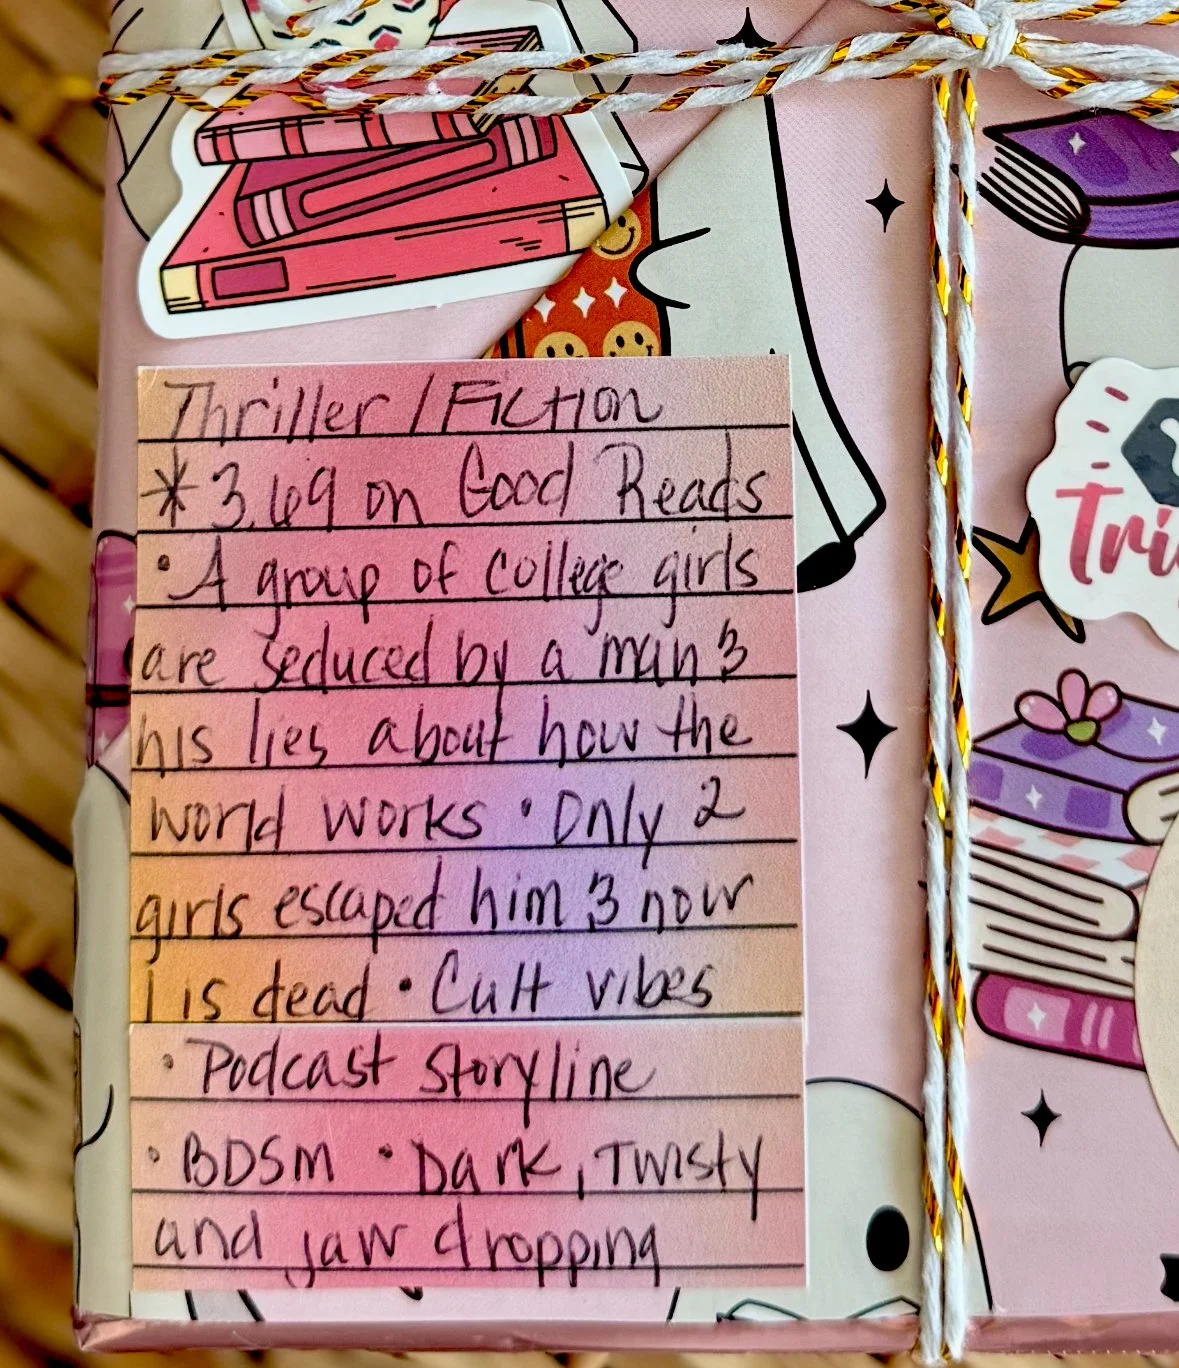 Thriller/Fiction
* 3.69 on Good Reads
• A group of college girls
are seduced by a man &
his lies about how the
world works • Only 2
girls escaped him & now
1 is dead • Cult vibes
• Podcast storyline
• BDSM • Dark, Twisty
and jaw dropping